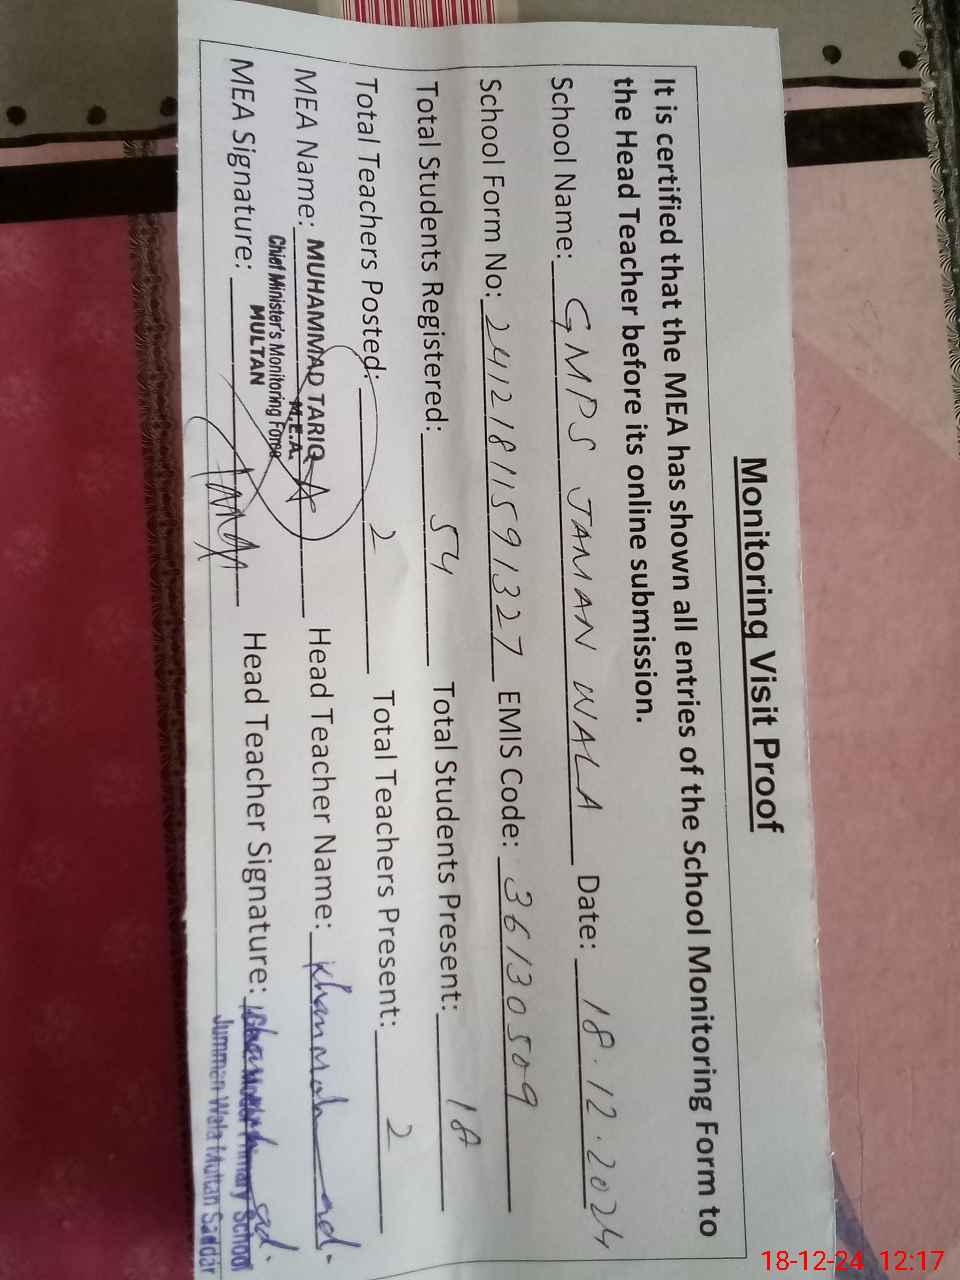 Monitoring Visit Proof
It is certified that the MEA has shown all entries of the School Monitoring Form to
the Head Teacher before its online submission.
School Name: GMPS JAMAN WALA Date: 18.12.2024
School Form No: 24121811591327 EMIS Code: 36130509
Total Students Registered: 54 Total Students Present: 18
Total Teachers Posted: 2 Total Teachers Present: 2
MEA Name: MUHAMMAD TARIQ Head Teacher Name:
M.E.A.
Chief Minister's Monitoring Force
MULTAN
MEA Signature: Head Teacher Signature:
Primary School
Jumman Wala Multan Saddar
18-12-24 12:17